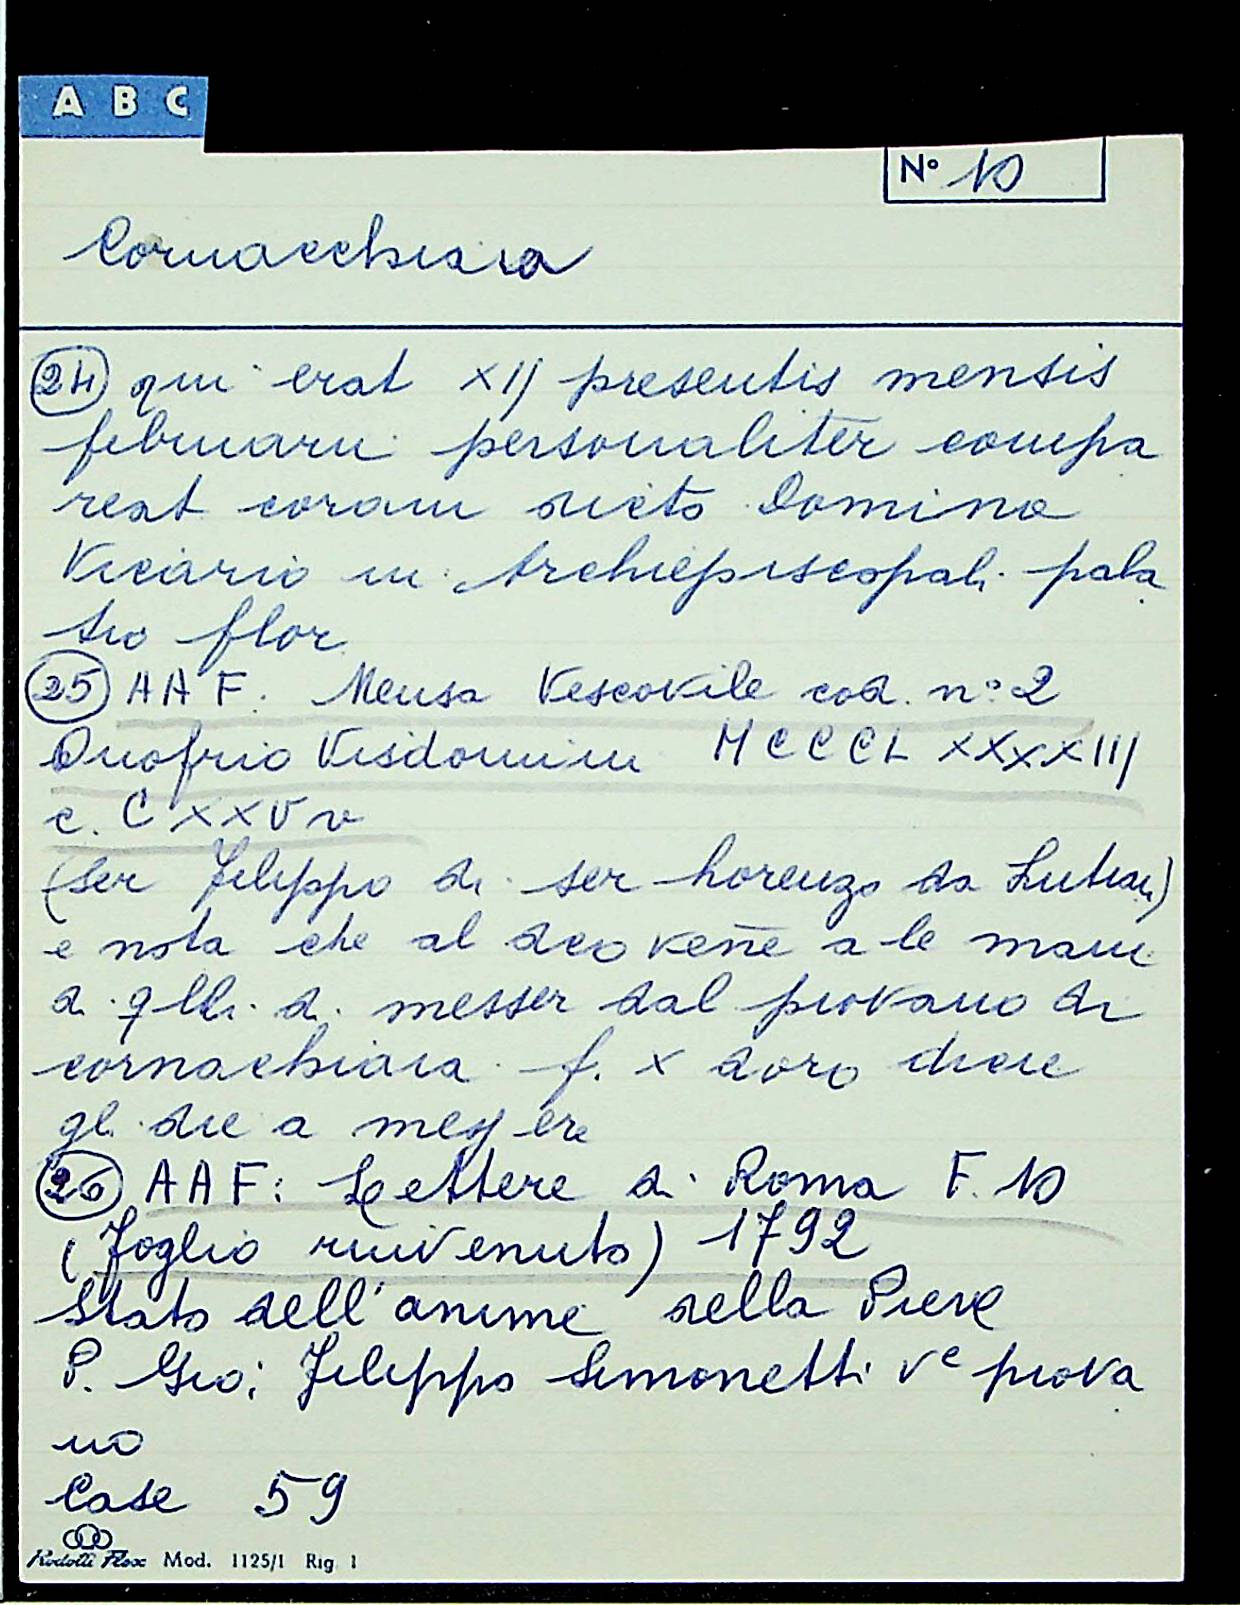 A B C
Nº 10
Cornacchiaia
24 qui erat XIJ presentis mensis
februarii personaliter compa
reat coram dicto Domino
Vicario in Archiepiscopali pala
tio flor.
25 AAF. Mensa Vescovile cod. nº 2
Onofrio Visdomini MCCCLXXXXIIJ
c. CXXV v
(ser Filippo di ser Lorenzo da Lutiani)
e nota che al deo venē a le mani
di qlli di messer dal piovano di
cornachiaia f. X doro
gli die a
26 AAF: Lettere di Roma F. 10
(Foglio rinvenuto) 1792
Stato dell'anime della Pieve
P. Gio: Filippo Simonetti Vᵉ piova
no
Case 59
Rodotti Flex Mod. 1125/1 Rig. 1